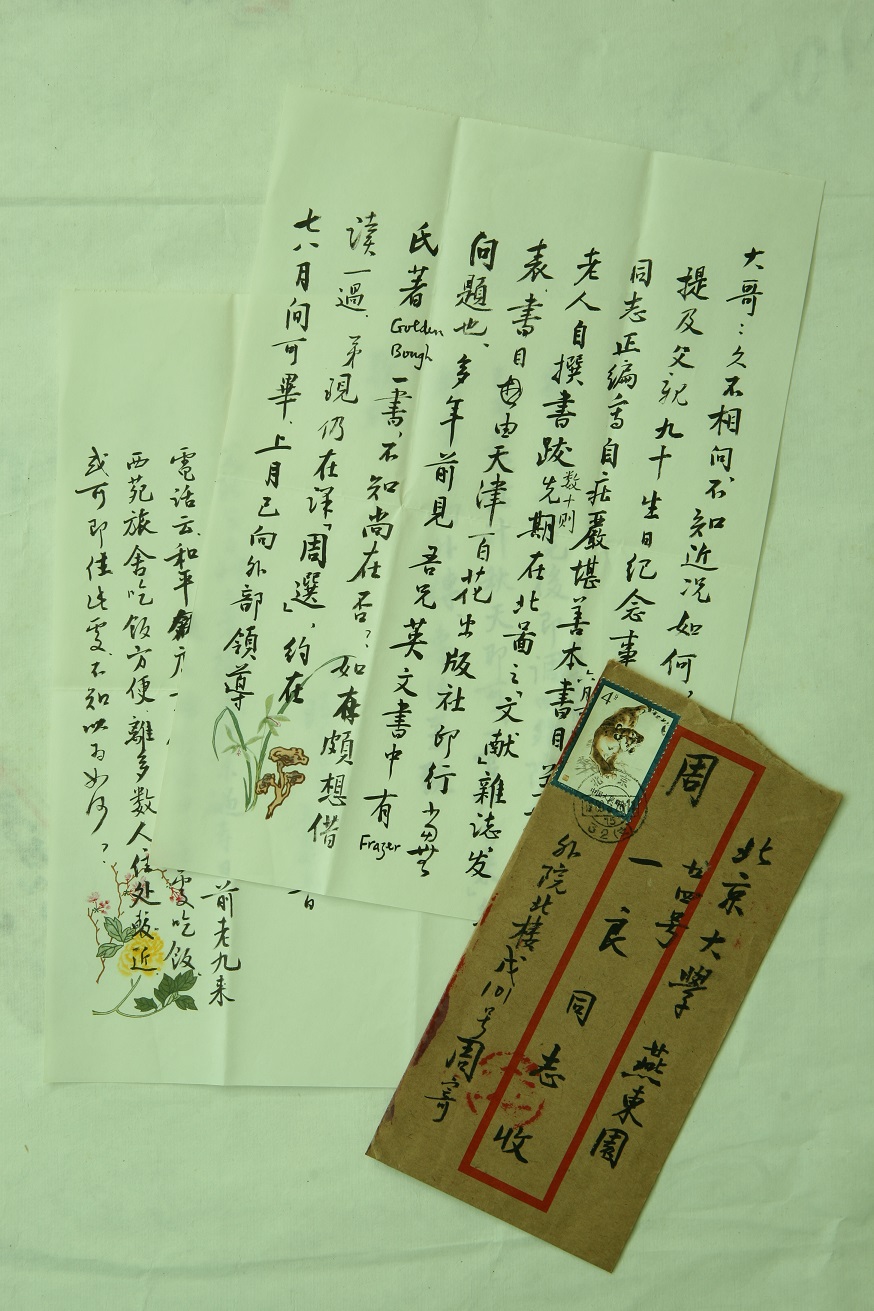 大哥：久不相问，不知近况如何，
提及父親九十生日纪念事
同志正编寿自莊嚴堪善本書目
老人自撰書跋数十则
先期在北啚之「文献」雜誌发
表，書目由天津百花出版社印行
问題也，多年前見吾兄英文書中有Frazer
氏著Golden Bough一書，不知尚在否？如存頗想借
读一過，弟現仍在译「周選」，约在
七八月间可畢，上月已向外部领導
前老九来
電話云和平
處吃飯
西苑旅舍吃飯方便離多数人住处較近
或可即住此處不知以为如何？
4
北京大學 燕東園
廿四号
周一良同志 收
外院北楼戊101号周寄